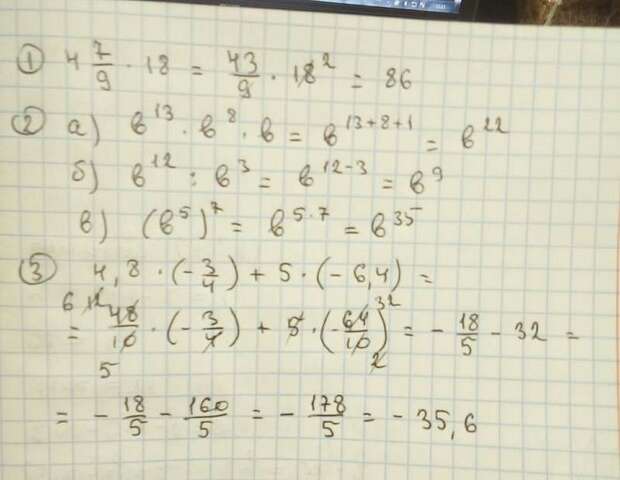 ① 4 7/9 · 18 = 43/9 · 18 2 = 86
② а) в^13 · в^8 · в = в^(13+8+1) = в^22
б) в^12 : в^3 = в^(12-3) = в^9
в) (в^5)^7 = в^(5·7) = в^35
③ 4,8 · (-3/4) + 5 · (-6,4) =
6 12 32
= 48/10 · (-3/4) + 5 · (-64/10) = -18/5 - 32 =
5 2
= -18/5 - 160/5 = -178/5 = -35,6